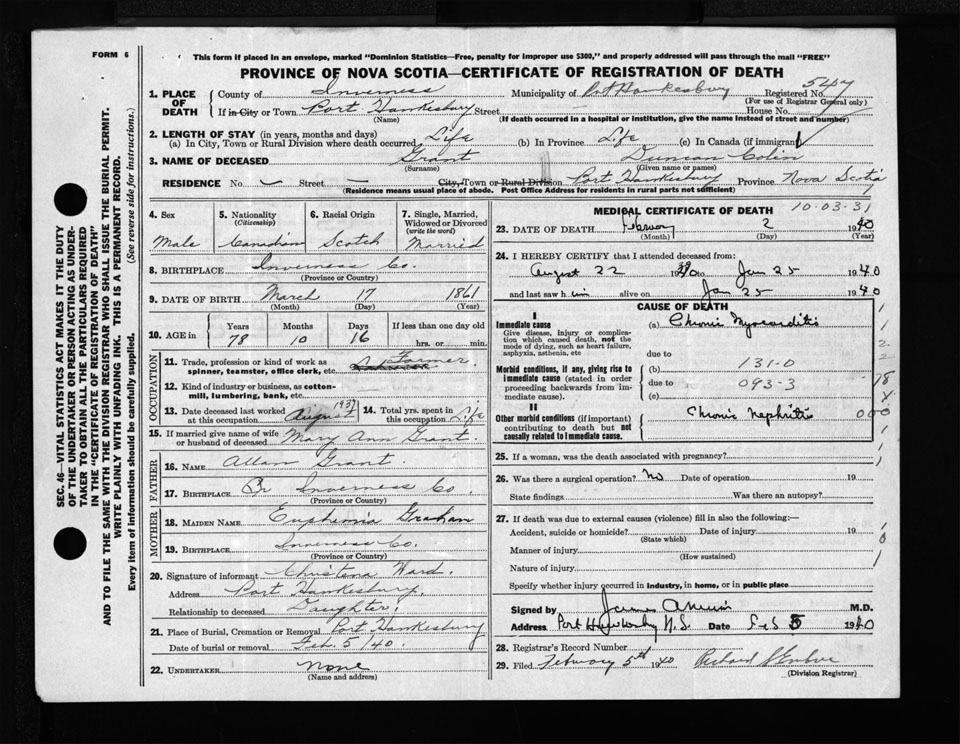 FORM 6
This form if placed in an envelope, marked "Dominion Statistics—Free, penalty for improper use $300," and properly addressed will pass through the mail "FREE"
PROVINCE OF NOVA SCOTIA—CERTIFICATE OF REGISTRATION OF DEATH
SEC. 46—VITAL STATISTICS ACT MAKES IT THE DUTY OF THE UNDERTAKER OR PERSON ACTING AS UNDERTAKER TO OBTAIN ALL THE PARTICULARS REQUIRED IN THE "CERTIFICATE OF REGISTRATION OF DEATH"
AND TO FILE THE SAME WITH THE DIVISION REGISTRAR WHO SHALL ISSUE THE BURIAL PERMIT.
WRITE PLAINLY WITH UNFADING INK. THIS IS A PERMANENT RECORD.
Every item of information should be carefully supplied. (See reverse side for instructions.)
1. PLACE OF DEATH County of Inverness Municipality of Port Hawkesbury Registered No. 547
(For use of Registrar General only)
If in City or Town Port Hawkesbury Street House No.
(Name) (If death occurred in a hospital or institution, give the name instead of street and number)
2. LENGTH OF STAY (in years, months and days)
(a) In City, Town or Rural Division where death occurred Life (b) In Province Life (c) In Canada (if immigrant)
3. NAME OF DECEASED Grant Duncan Colin
(Surname) (Given name or names)
RESIDENCE No. — Street — City, Town or Rural Division Port Hawkesbury Province Nova Scotia
(Residence means usual place of abode. Post Office Address for residents in rural parts not sufficient)
4. Sex Male
5. Nationality (Citizenship) Canadian
6. Racial Origin Scotch
7. Single, Married, Widowed or Divorced (write the word) Married
8. BIRTHPLACE Inverness Co.
(Province or Country)
9. DATE OF BIRTH March 17 1861
(Month) (Day) (Year)
10. AGE in Years 78 Months 10 Days 16 If less than one day old hrs. or min.
OCCUPATION
11. Trade, profession or kind of work as spinner, teamster, office clerk, etc. Farmer
12. Kind of industry or business, as cotton-mill, lumbering, bank, etc.
13. Date deceased last worked at this occupation August 1937
14. Total yrs. spent in this occupation Life
15. If married give name of wife or husband of deceased Mary Ann Grant.
FATHER
16. NAME Allan Grant.
17. BIRTHPLACE Inverness Co.
(Province or Country)
MOTHER
18. MAIDEN NAME Euphemia Graham
19. BIRTHPLACE Inverness Co.
(Province or Country)
20. Signature of informant Christena Ward.
Address Port Hawkesbury.
Relationship to deceased Daughter.
21. Place of Burial, Cremation or Removal Port Hawkesbury
Date of burial or removal Feb. 5/40.
22. UNDERTAKER None
(Name and address)
MEDICAL CERTIFICATE OF DEATH 10-03-31
23. DATE OF DEATH February 2 1940
(Month) (Day) (Year)
24. I HEREBY CERTIFY that I attended deceased from:
August 22 to Jan 25 1940
and last saw him alive on Jan 25 1940
CAUSE OF DEATH
I
Immediate cause (a) Chronic Myocarditis
Give disease, injury or complication which caused death, not the mode of dying, such as heart failure, asphyxia, asthenia, etc
due to
Morbid conditions, if any, giving rise to immediate cause (stated in order proceeding backwards from immediate cause).
(b) 131-0
due to 093-3
(c)
II
Other morbid conditions (if important) contributing to death but not causally related to immediate cause.
Chronic Nephritis
25. If a woman, was the death associated with pregnancy?
26. Was there a surgical operation? No Date of operation 19
State findings Was there an autopsy?
27. If death was due to external causes (violence) fill in also the following:—
Accident, suicide or homicide? Date of injury 19
(State which)
Manner of injury
(How sustained)
Nature of injury
Specify whether injury occurred in industry, in home, or in public place
Signed by James M.D.
Address Port Hawkesbury N.S. Date Feb 5 1940
28. Registrar's Record Number
29. Filed February 5th 1940 Richard
(Division Registrar)